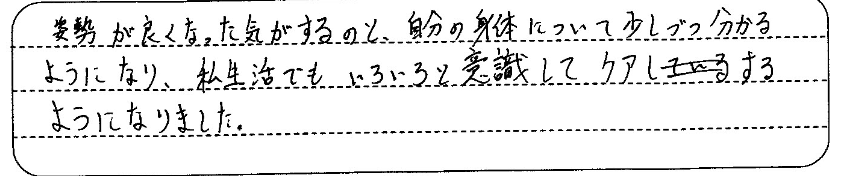 姿勢が良くなった気がするのと、自分の身体について少しづつ分かる
ようになり、私生活でもいろいろと意識してケアしする
ようになりました。